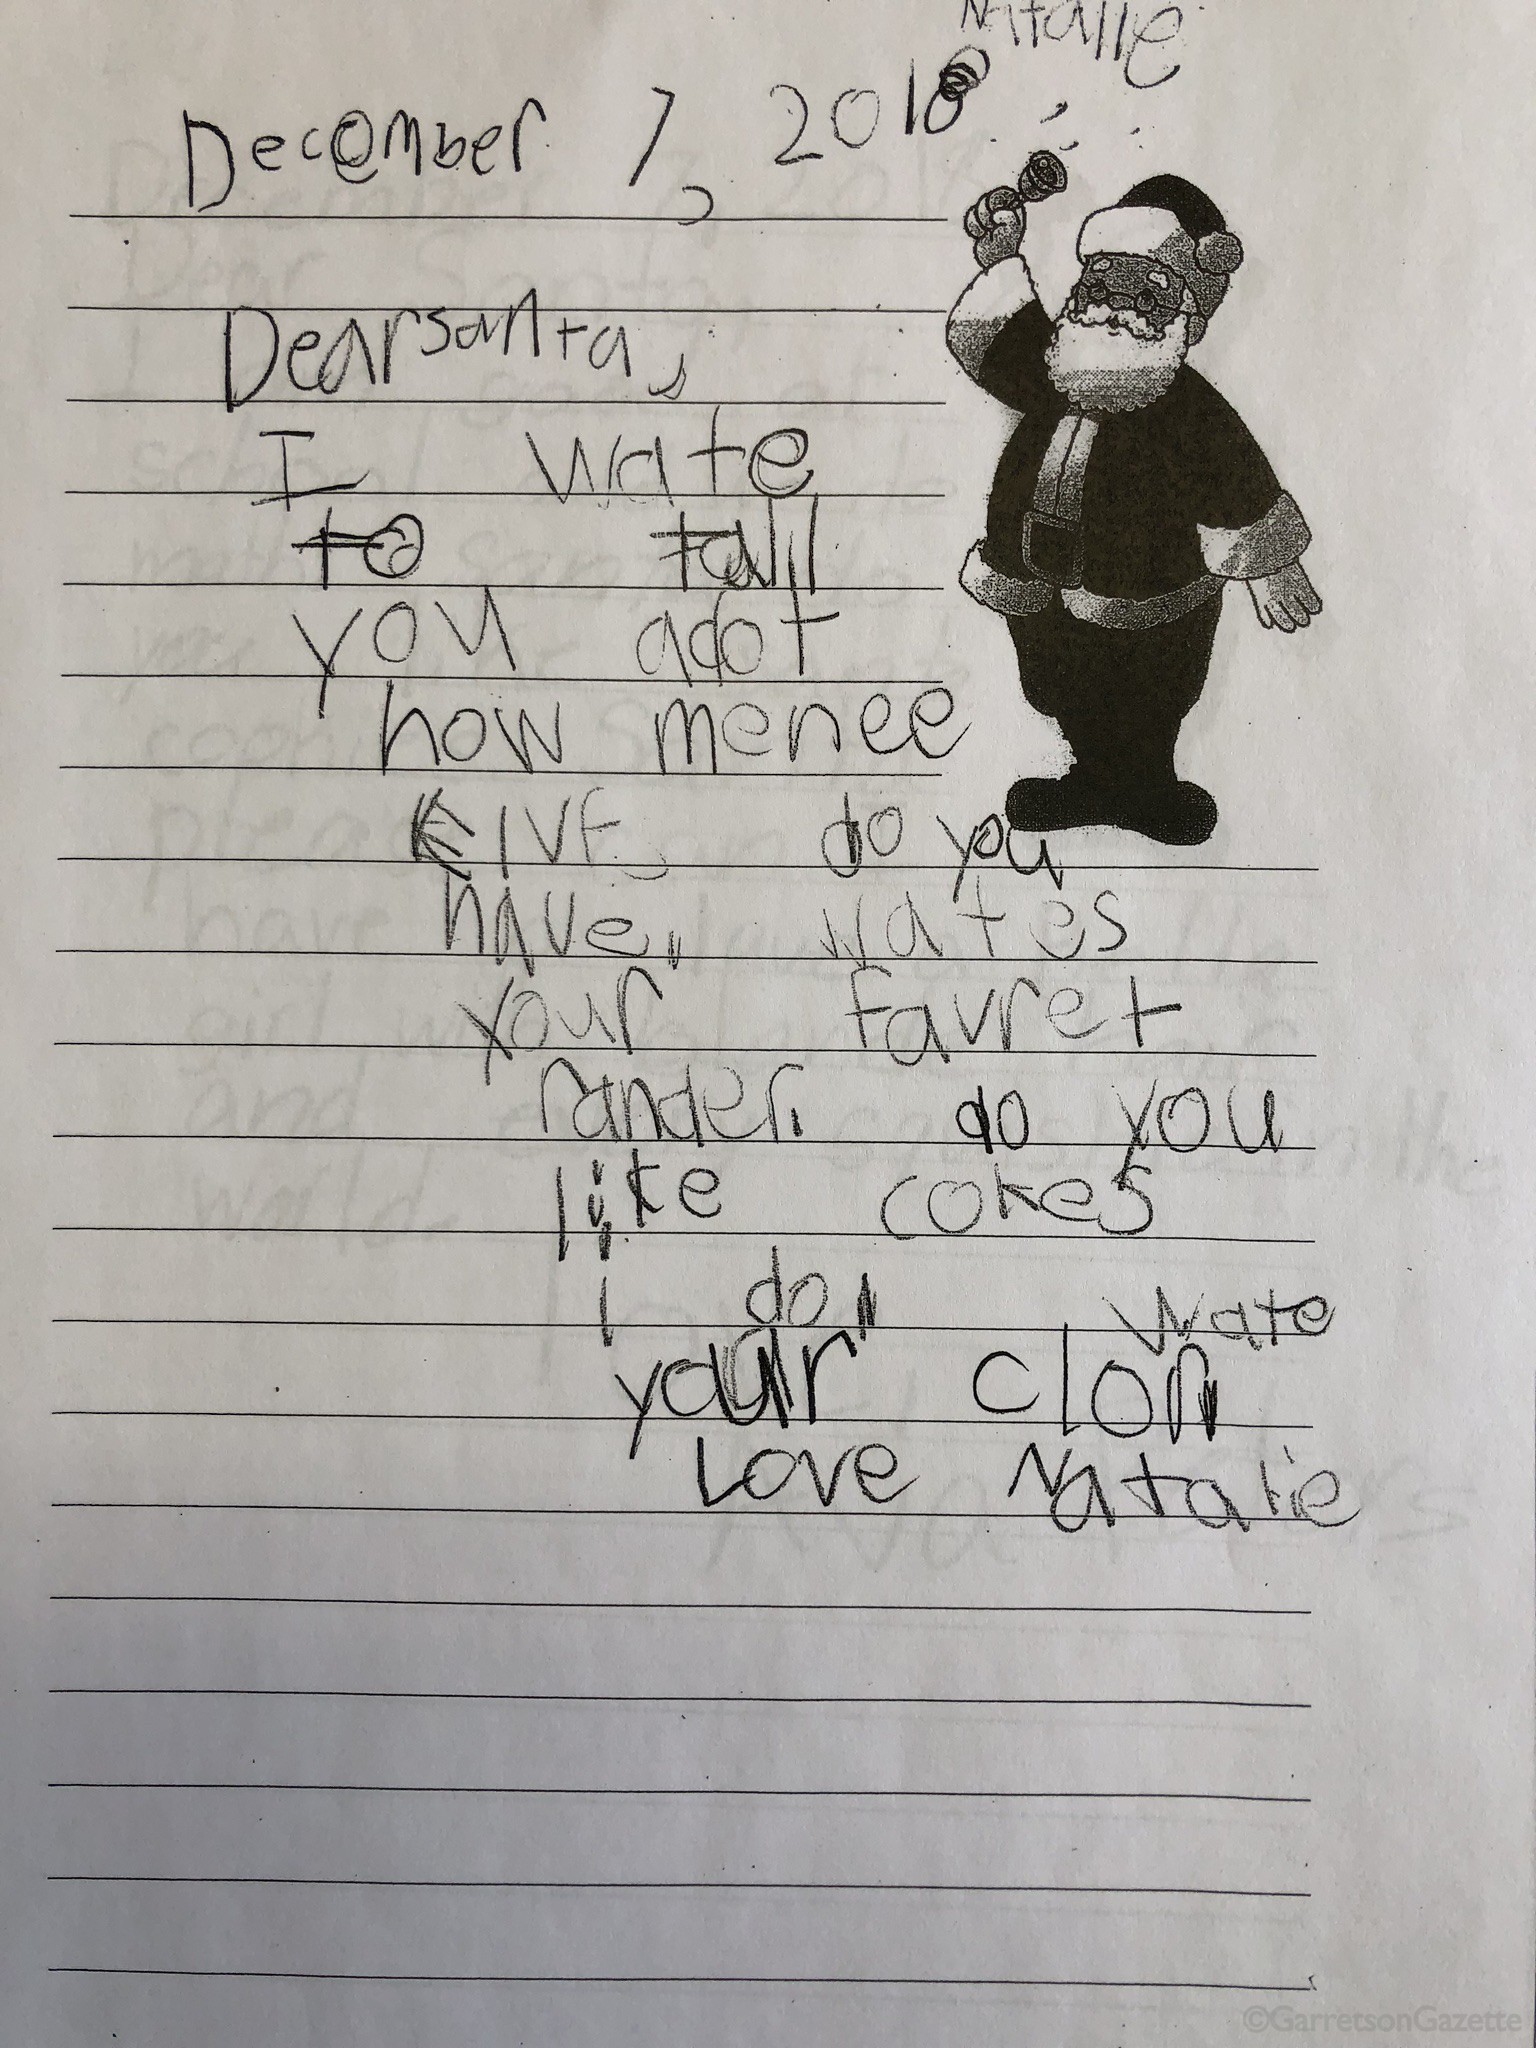 Natalie
December 7, 2018
Dearsanta,
I wate
to tall
you adot
how menee
EIVES do you
have wates
your favret
rander. do you
like cokes
I do wate
your clor
Love Natalie
©GarretsonGazette